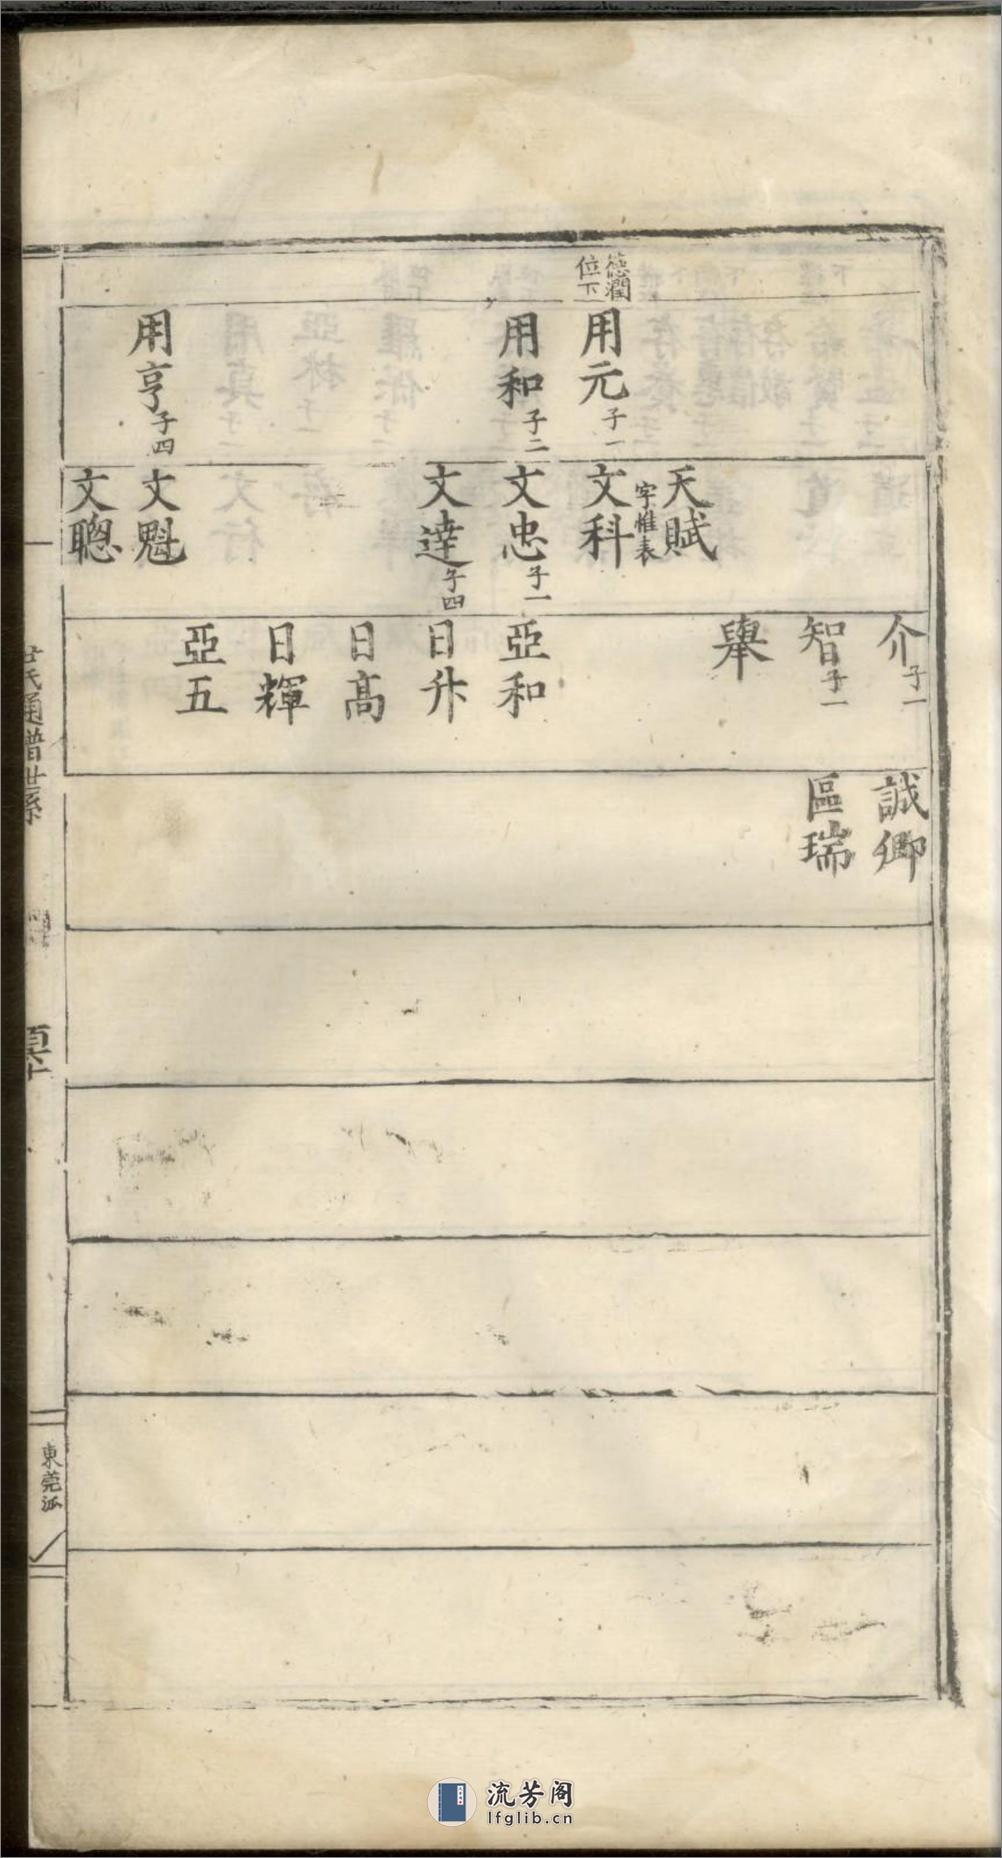 德潤
位下
用元子一
用和子二
用亨子四
天賦
字惟表
文科
文忠子一
文達子四
文魁
文聰
介子一
智子一
舉
亞和
日升
日高
日輝
亞五
誠卿
區瑞
氏通譜世系
東莞派
流芳阁
lfglib.cn